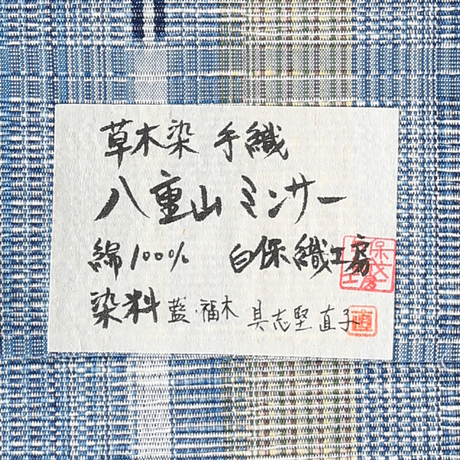 草木染 手織
八重山ミンサー
綿100% 白保織工房
染料 藍・福木 具志堅 直子
直